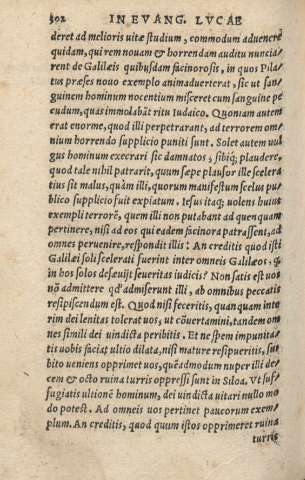 302 IN EVANG. LVCAE
deret ad melioris uitæ studium, commodum aduenere
quidam, qui rem nouam & horrendam auditu nuncia-
rent de Galilæis quibusdam facinorosis, in quos Pila-
tus præses nouo exemplo animaduerterat, sic ut san-
guinem hominum nocentium misceret cum sanguine pe
cudum, quas immolabāt ritu Iudaico. Quoniam autem
erat enorme, quod illi perpetrarant, ad terrorem om-
nium horrendo supplicio puniti sunt. Solet autem uul
gus hominum execrari sic damnatos, sibiq; plaudere,
quod tale nihil patrarit, quum sæpe plausor ille scelera
tius sit malus, quàm illi, quorum manifestum scelus pu-
blico supplicio fuit expiatum. Iesus itaq; uolens huius
exempli terrorē, quem illi non putabant ad quenquam
pertinere, nisi ad eos qui eadem facinora patrassent, ad
omnes peruenire, respondit illis: An creditis quod isti
Galilæi soli scelerati fuerint inter omneis Galilæos, q̃
in hos solos desæuijt seueritas iudicis? Non satis est uos
nō admittere qd' admiserunt illi, ab omnibus peccatis
resipiscendum est. Quod nisi feceritis, quanquam inte
rim dei lenitas tolerat uos, ut cōuertamini, tandem om
nes simili dei uindicta peribitis. Et ne spem impunita-
tis uobis faciat ultio dilata, nisi mature resipueritis, su
bito ueniens opprimet uos, quēadmodum nuper illi de
cem & octo ruina turris oppressi sunt in Siloa. Vt suf-
fugiatis ultionē hominum, dei uindicta uitari nullo mo
do potest. Ad omneis uos pertinet paucorum exem-
plum. An creditis, quod quum istos opprimeret ruina
turris